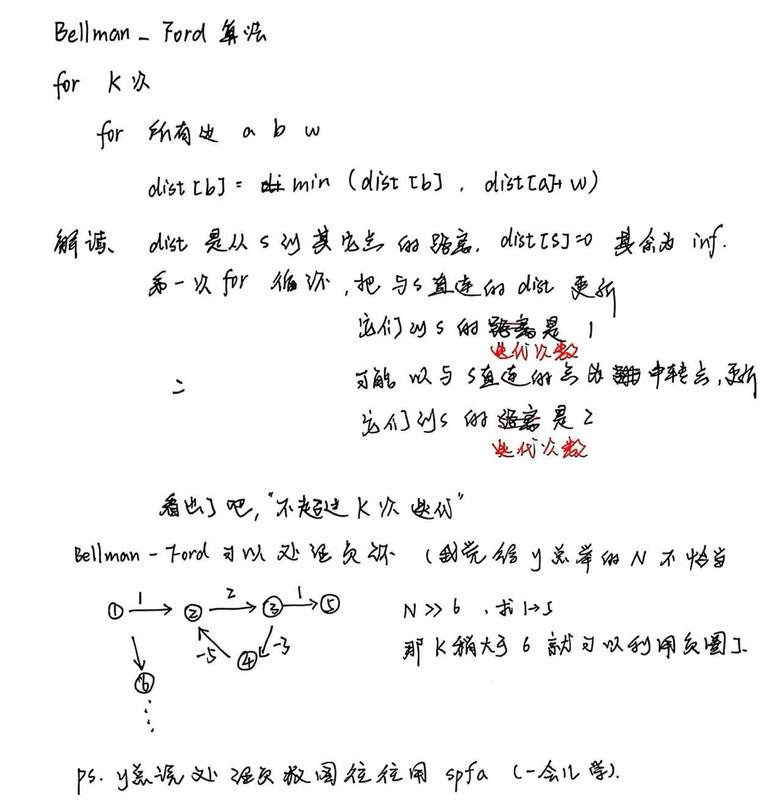 Bellman-Ford 算法
for K次
for 所有边 a b w
dist[b] = min (dist[b], dist[a]+w)
解读、 dist 是从 s 到其它点的距离, dist[s]=0 其余为 inf.
第一次 for 循环, 把与 s 直连的 dist 更新
它们到 s 的距离是 1
迭代次数
二 可能以与 s 直连的点为中转点, 更新
它们到 s 的距离是 2
迭代次数
看出了吧, "不超过 K 次迭代"
Bellman-Ford 可以处理负环 (我觉得 y总举的 N 不恰当
① 1 ② 2 ③ 1 ⑤ N >> 6, 求 1→5
-5 ④ -3 那 K 稍大于 6 就可以利用负圈].
⑥
ps. y总说处理负权图往往用 spfa (一会儿学).